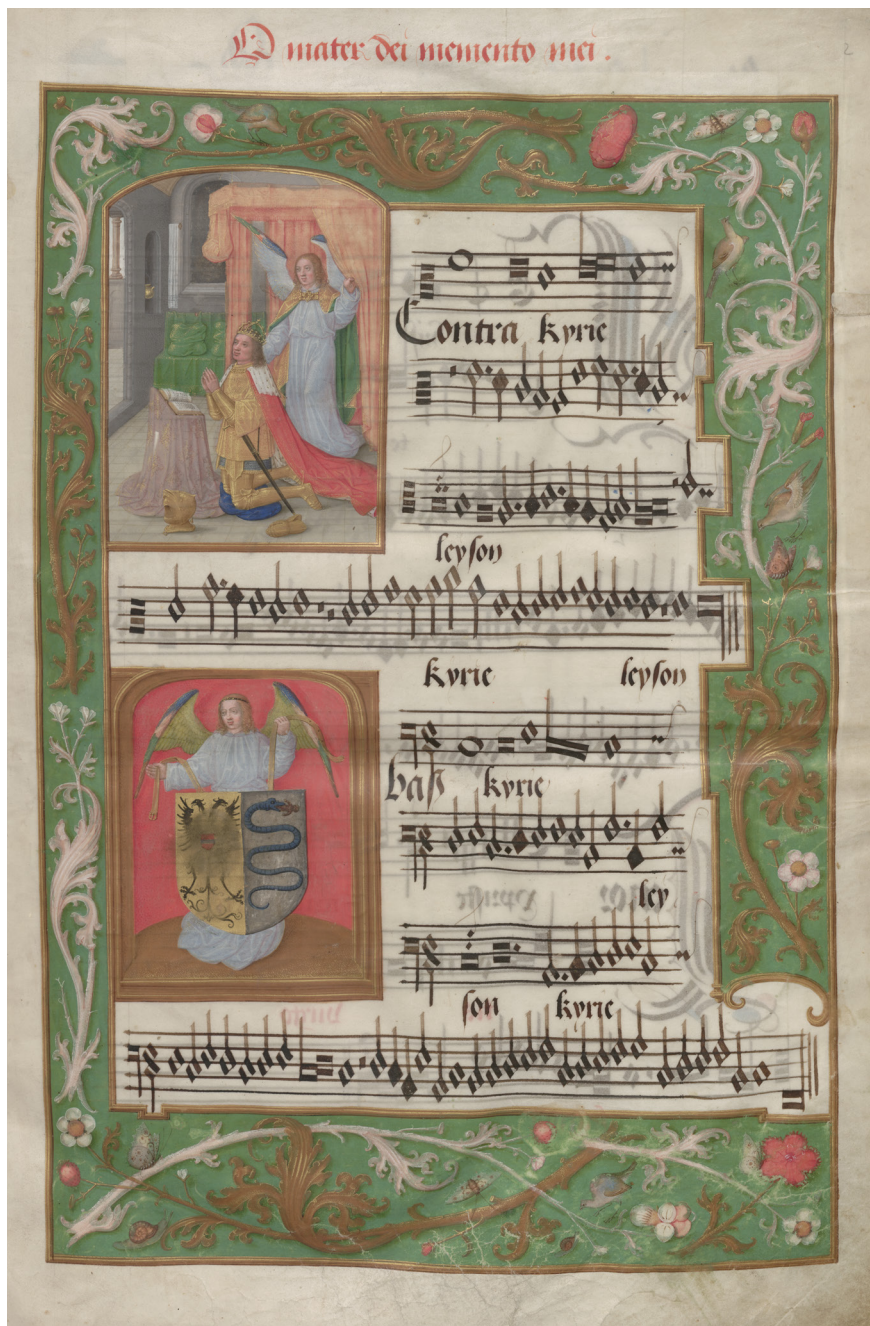 O mater dei memento mei.
2
Contra kyrie
leyson
kyrie leyson
bass kyrie
ley
son kyrie